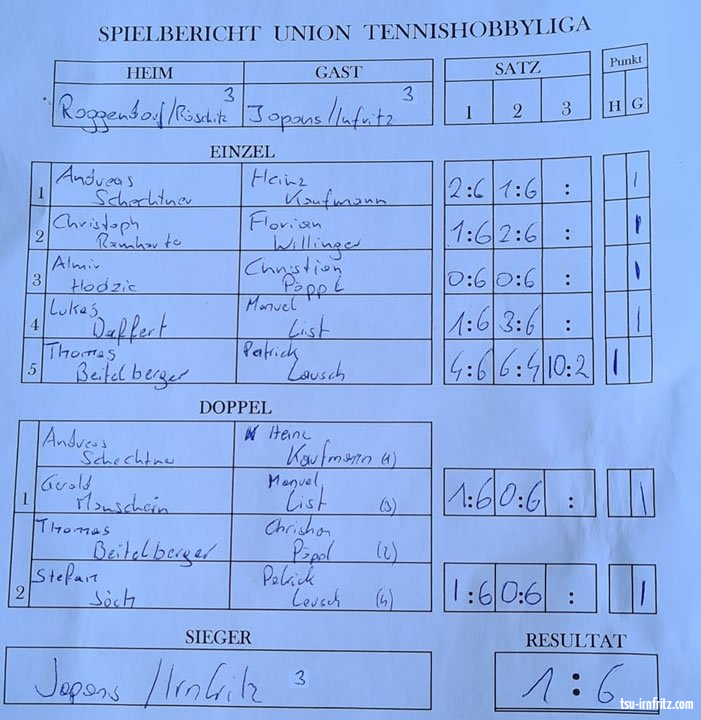 SPIELBERICHT UNION TENNISHOBBYLIGA
HEIM GAST SATZ Punkt
Roggendorf/Röschitz 3 Japons/Irnfritz 3 1 2 3 H G
EINZEL
1 Andreas Schechtner Heinz Kaufmann 2:6 1:6 : 1
2 Christoph Florian Willinger 1:6 2:6 : 1
3 Almir Hodzic Christian Pöppl 0:6 0:6 : 1
4 Lukas Daffert Manuel List 1:6 3:6 : 1
5 Thomas Beitelberger Patrick Lausch 4:6 6:4 10:2 1
DOPPEL
Andreas Schechtner Heinz Kaufmann (1)
1 Gerold Manschein Manuel List (3) 1:6 0:6 : 1
Thomas Beitelberger Christian Pöppl (2)
2 Stefan Patrick Lausch (4) 1:6 0:6 : 1
SIEGER RESULTAT
Japons/Irnfritz 3 1:6
tsu-irnfritz.com